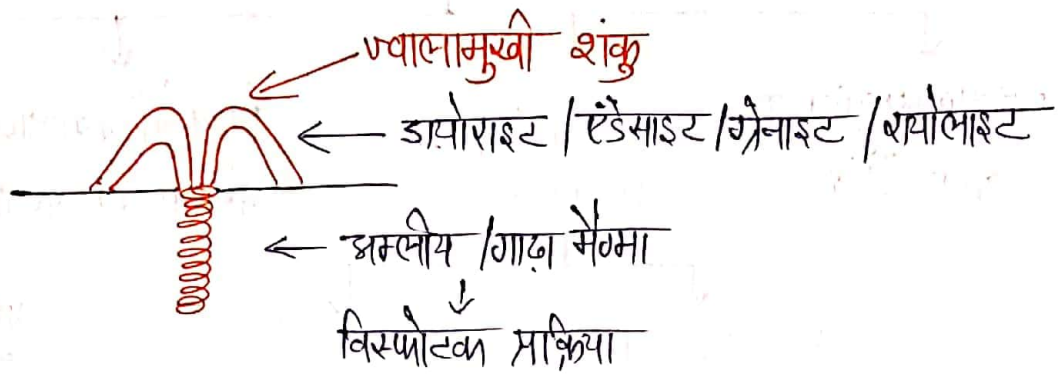 ज्वालामुखी शंकु
डायोराइट / एंडेसाइट / ग्रेनाइट / रायोलाइट
अम्लीय / गाढ़ा मैग्मा
विस्फोटक प्रक्रिया